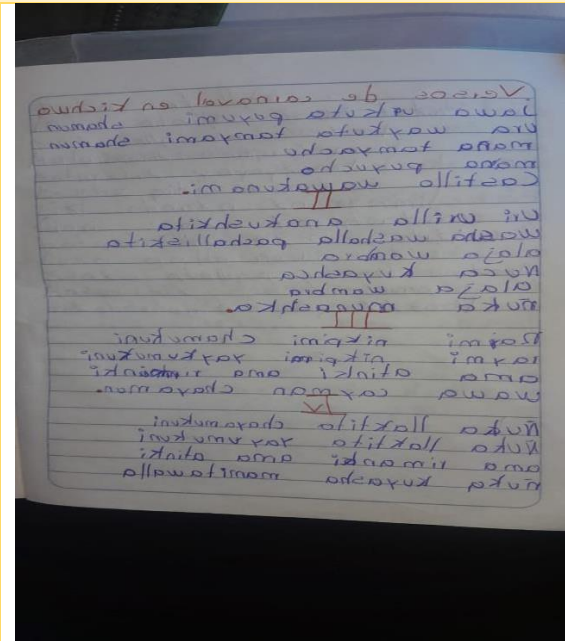 Versos de carnaval en kichwa
Jawa urkuta puyumi shamun
Ura waykuta tamyami shamun
mana tamyachu
mana puyuchu
Castilla wawakuna mi.
II
Uri urilla anakushkita
washa washalla pachallishkita
alaja wambra
Ñuca kuyashca
alaja wambra
ñuka munashka.
III
Raymi nishpimi chamukuni
raymi nishpimi
ama piñanki ama
wawa carmen
IV
Ñuka llaktita charamukuni
Ñuka llaktita
ama rimanki ama piñanki
ñuka kuyashka mamitawalla